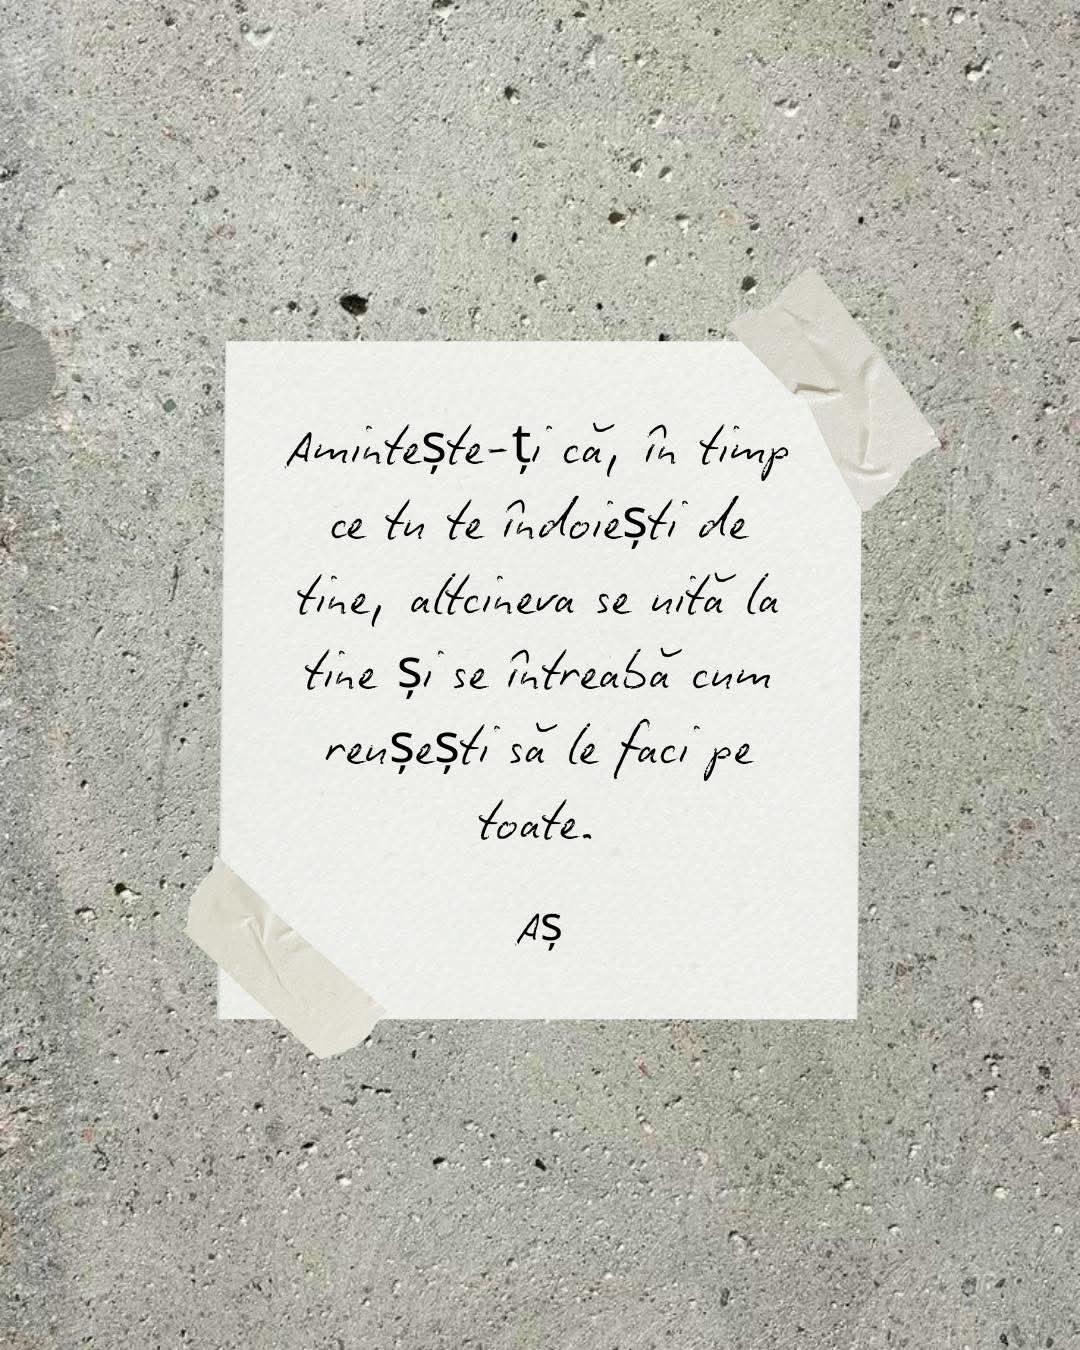 Amintește-ți că, în timp
ce tu te îndoiești de
tine, altcineva se uită la
tine și se întreabă cum
reușești să le faci pe
toate.
AȘ